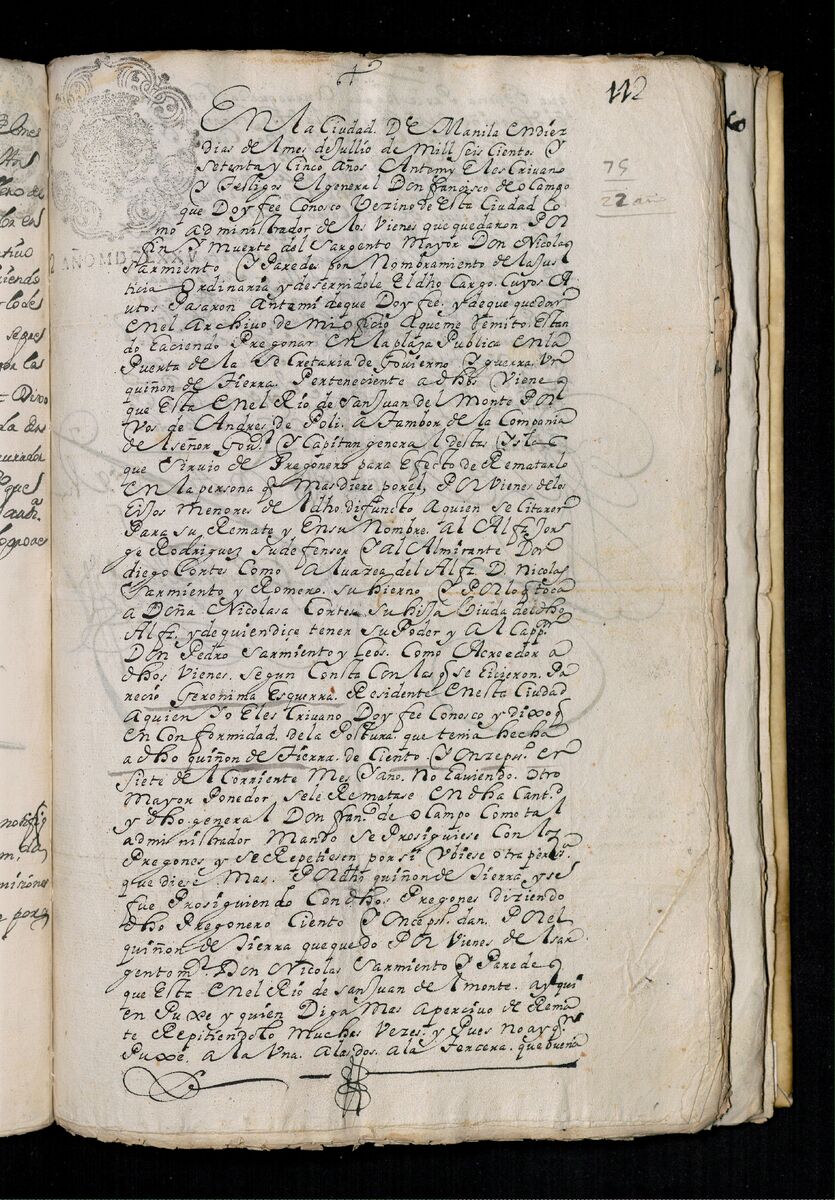 112
75
22
AÑOMDCLXXV
En la Ciudad. De Manila endiez
dias de l mes de Jullio de Mill Seis Cientos Y
Setenta y Cinco años Antemy El es Crivano
Y testigos El general Don francisco de o Campo
que Doy fee Conosco Vezino de Esta Ciudad Co
mo administrador de los Vienes que quedaron Por
fin Y Muerte del Sargento Mayor Don Nicolas
Sarmiento Y Paredes por Nombramiento de la Jus
ticia Ordinaria y desernidole El dho Cargo. Cuyos A
utos Pasaron Antemi de que Doy fee. y de que quedan
en el Archivo de mi oficio Aqueme Remito. Estan
do haciendo Pregonar En la plaza Publica en la
Puerta de la Secretaria de Govierno Y guerra. Un
quiñon de tierra. Perteneciente a dhos Vienes
que Esta en el Rio de San Juan del Monte Por
Vos de Andres de Poli. Atambor de la Compania
de l Señor Gov.or Y Capitan general destas Yslas
que Sirvio de Pregonero para Efecto de Rematarlo
en la persona q Mas diere por el, Por Vienes de los
hijos Menores de l dho difuncto a quien se Citaron
Para su Remate y En su Nombre. al Alfz Jor
ge Rodriguez Su defensor Y al Almirante Don
diego Cortes Como Alvacea del Alfz D. Nicolas
Sarmiento y Romero. Su hierno Y Por lo q toca
a Doña Nicolasa Cortes. Su hija Viuda del dho
Alfz. y de quien dice tener Su Poder y al Cappn
Don Pedro Sarmiento y Leos. Como Acreedor a
dhos Vienes. Segun Consta Con las q se hicieron. Pa
recio Geronima Esguerra. Residente en esta Ciudad
A quien Yo El es Crivano Doy fee Conosco y dixo q
en Conformidad de la Postura. que tenia hecha
a dho quiñon de tierra. de Ciento Y Onze pss. en
Siete de l Corriente Mes Y año. No haviendo. Otro
Mayor Ponedor Se le Rematase en dha Cantd.
y dho general Don fan.co de o Campo Como tal
administrador Mando Se Prosiguiese Con los
Pregones y se Repetiesen por si Vbiese otra person.a
que diese Mas. Por dho quiñon de tierra y se
fue Prosiguiendo Con dhos Pregones diziendo
dho Pregonero Ciento Y Once pss. dan. Por el
quiñon de tierra que quedo Por Vienes de l Sar
gento m.r Don Nicolas Sarmiento Y Paredes
que Esta en el Rio de San Juan de l monte. Ay qui
en Puxe y quien Diga Mas Apercivo de Rema
te Repitiendolo Muchas Vezes. y Pues No ay q.n
Puxe. A la Una. A las dos. A la Tercera. que buena